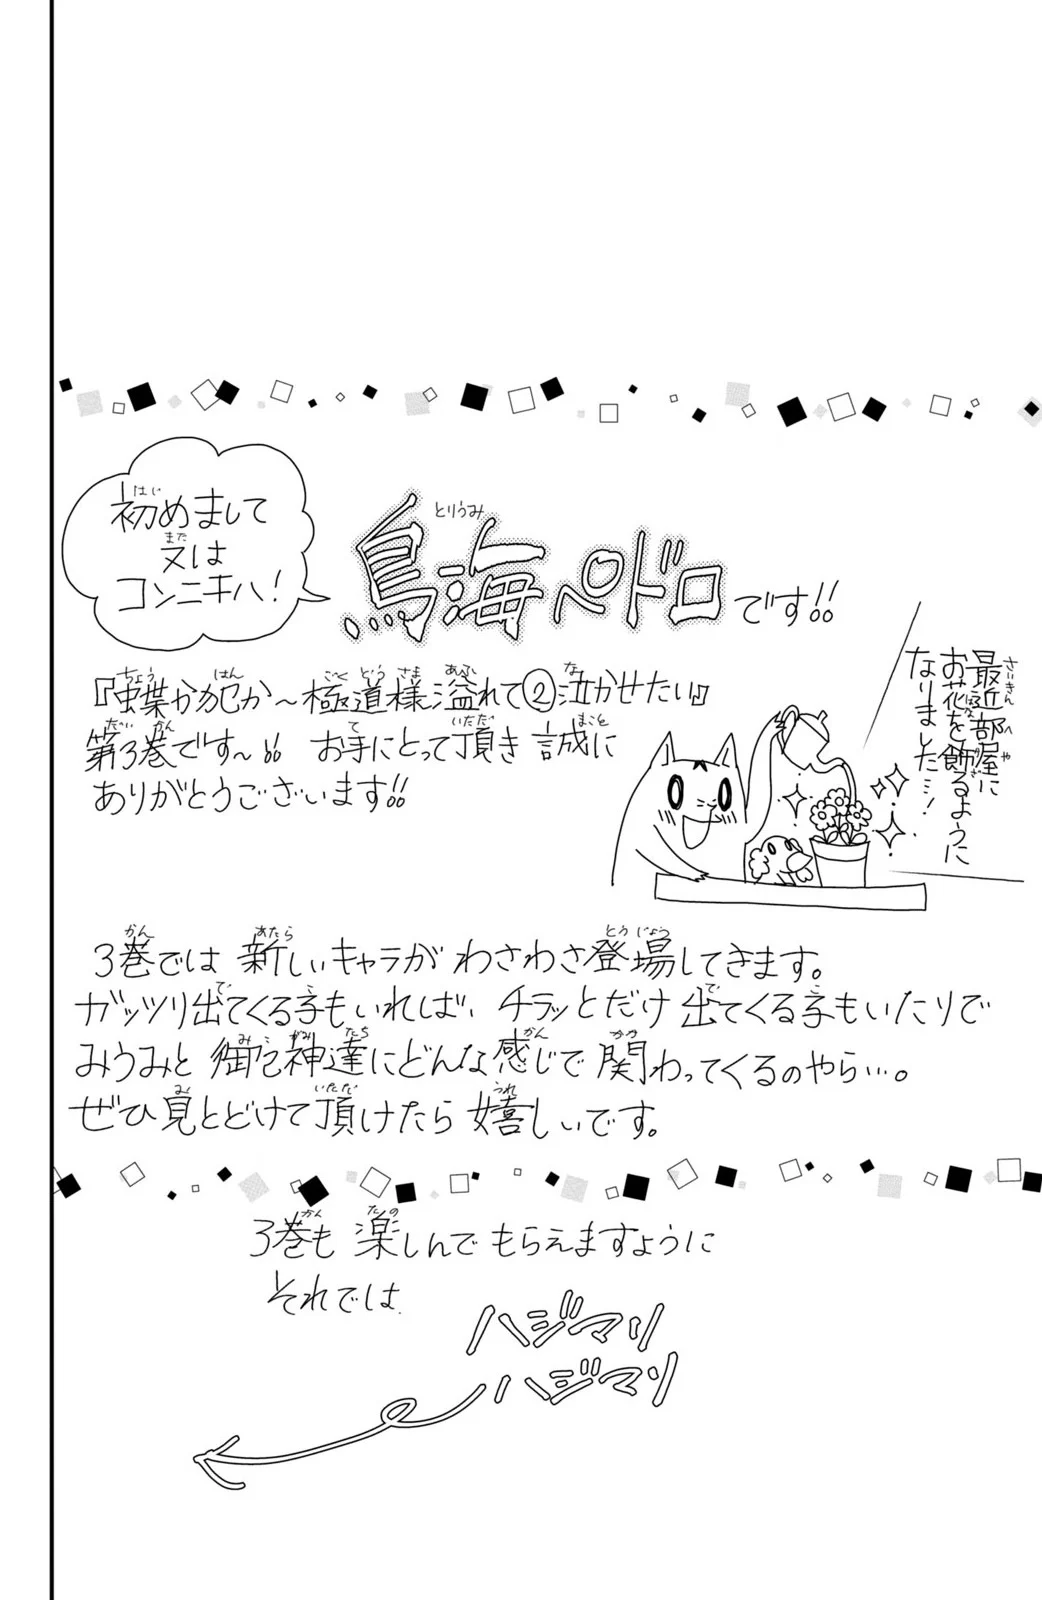 初めまして
又は
コンニチハ!
鳥海ペドロです!!
『蝶か犯か〜極道様溢れて②泣かせたい』
第3巻です〜!! お手にとって頂き 誠に
ありがとうございます!!
最近部屋に
お花を飾るように
なりました…!
3巻では 新しいキャラが わさわさ登場してきます。
ガッツリ出てくる子もいれば、チラッとだけ 出てくる子もいたりで
みうみと 御神達にどんな感じで 関わってくるのやら…。
ぜひ見とどけて頂けたら 嬉しいです。
3巻も 楽しんで もらえますように
それでは
ハジマリ
ハジマリ